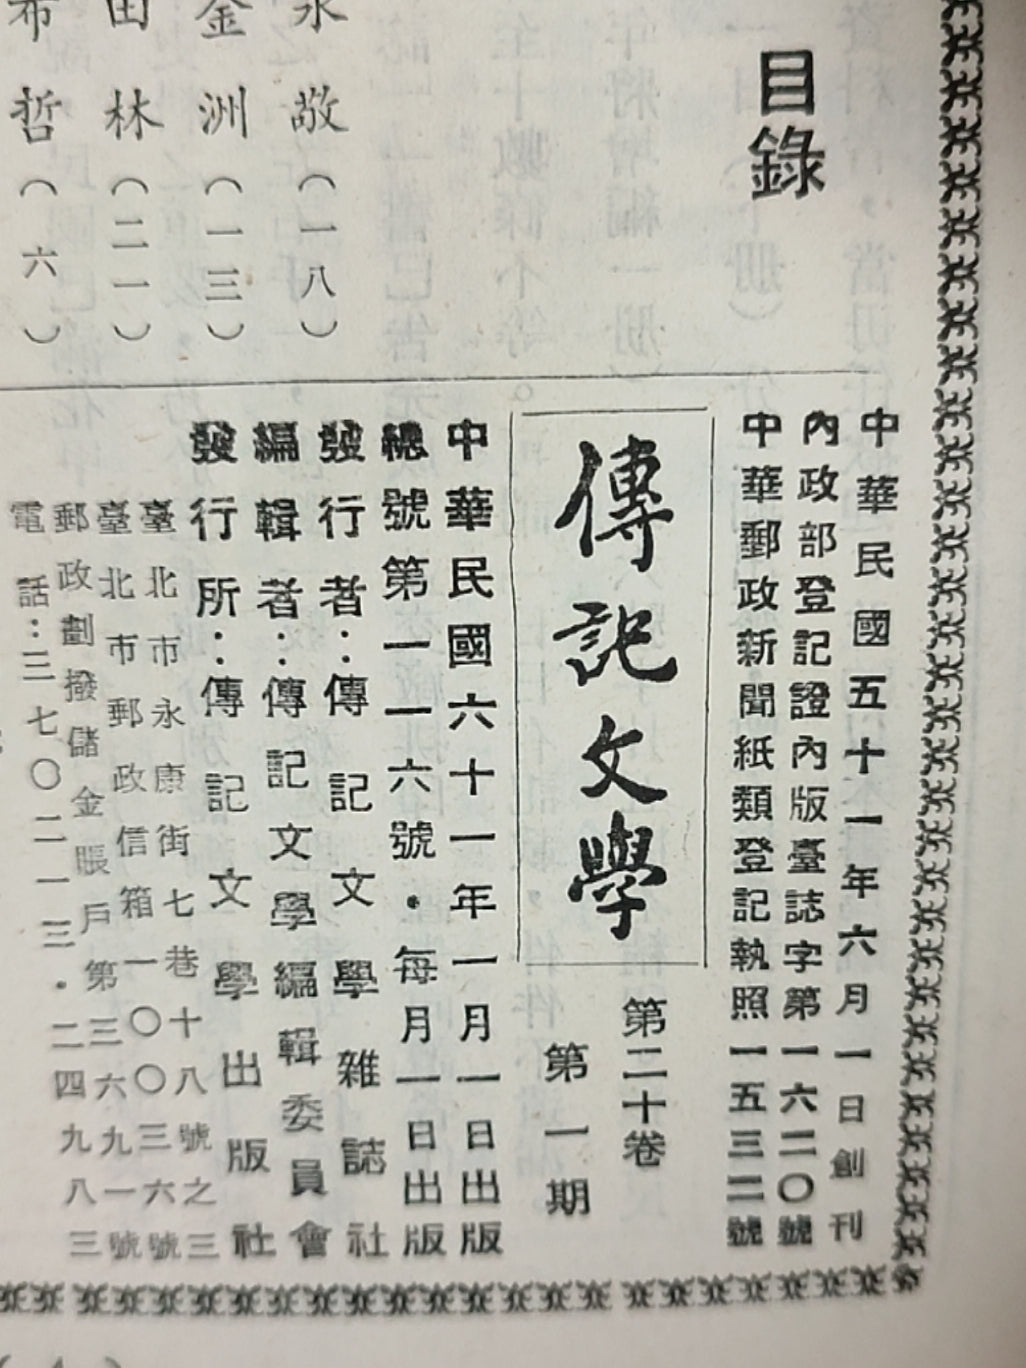 目錄
永敬（一八）
金洲（一三）
田林（二一）
希哲（六）
中華民國五十一年六月一日創刊
內政部登記證內版臺誌字第一六二〇號
中華郵政新聞紙類登記執照一五三二號
傳記文學
第二十卷
第一期
中華民國六十一年一月一日出版
總號第一一六號·每月一日出版
發行者：傳記文學雜誌社
編輯者：傳記文學編輯委員會
發行所：傳記文學出版社
臺北市永康街七巷十八號之三
臺北市郵政信箱一〇〇三六號
郵政劃撥儲金賬戶第三六九一號
電話：三七〇二一三·二四九八三